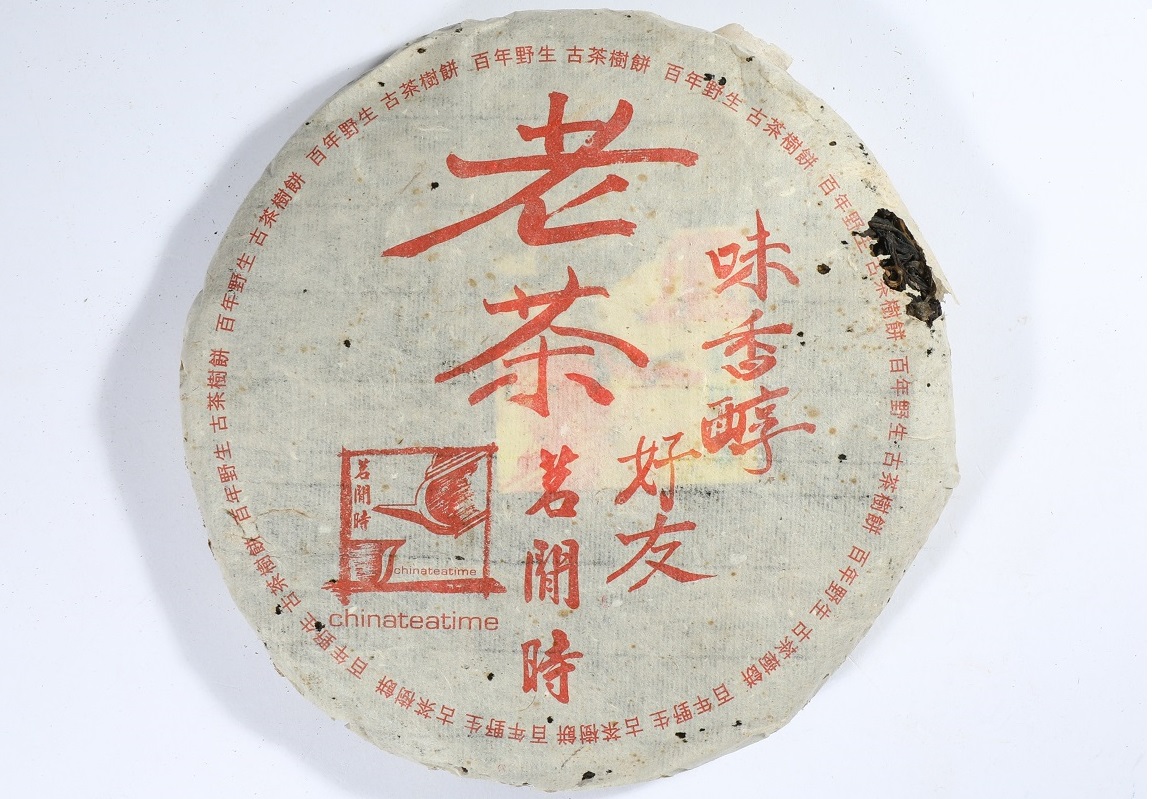 百年野生 古茶樹餅 百年野生 古茶樹餅 百年野生 古茶樹餅 百年野生 古茶樹餅 百年野生 古茶樹餅 百年野生 古茶樹餅 百年野生 古茶樹餅 百年野生 古茶樹餅 百年野生 古茶樹餅 百年野生 古茶樹餅 百年野生 古茶樹餅
老茶
味香醇
好友
茗閒時
茗閒時
chinateatime
chinateatime